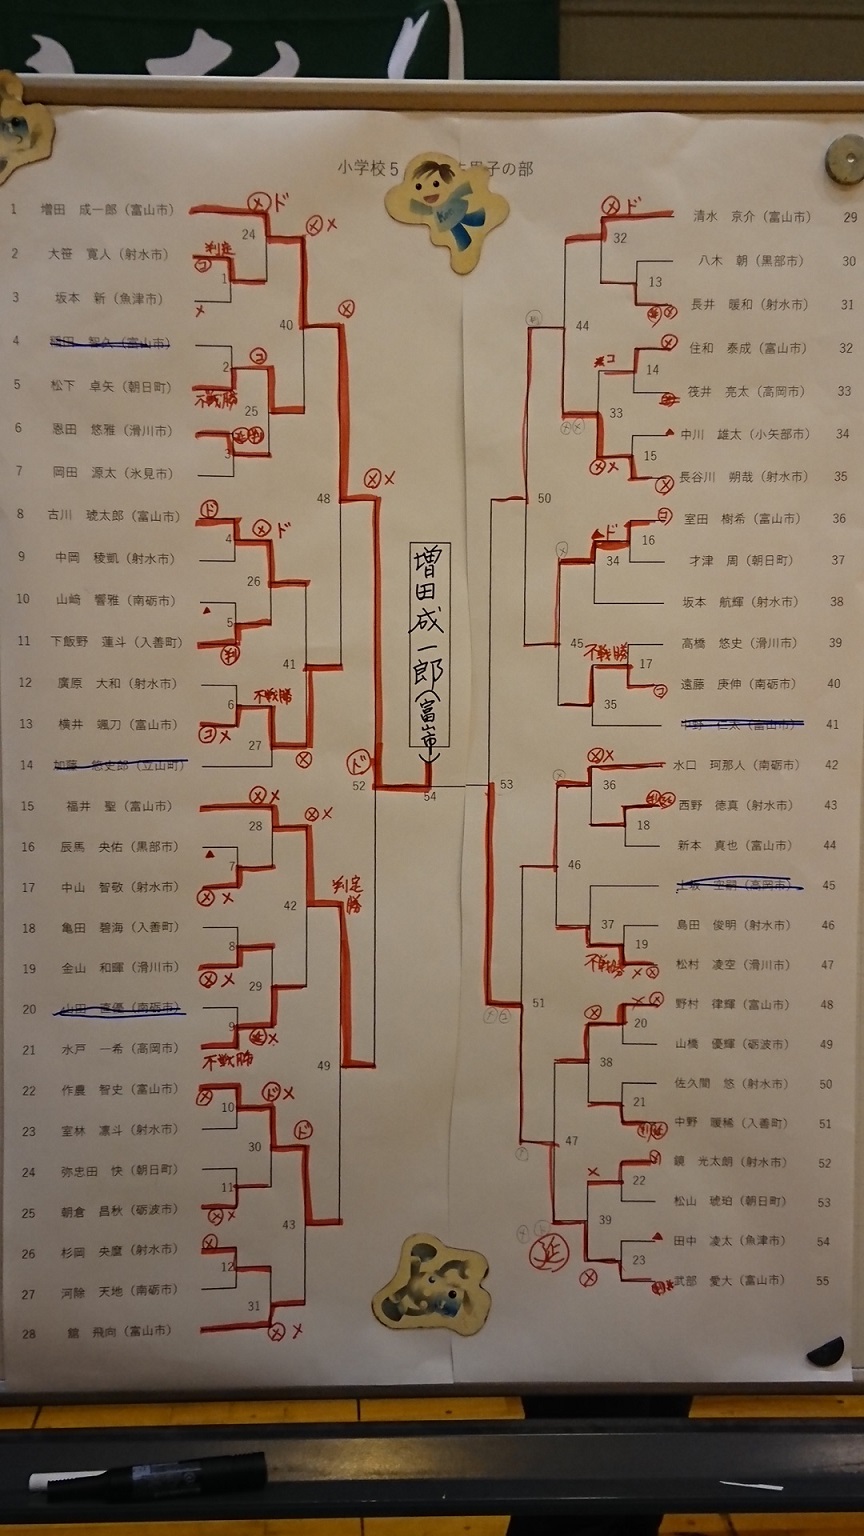 小学校5 男子の部
1 増田 成一郎 (富山市)
2 大笹 寛人 (射水市)
3 坂本 新 (魚津市)
4 智久 (富山市)
5 松下 卓矢 (朝日町)
6 恩田 悠雅 (滑川市)
7 岡田 源太 (氷見市)
8 古川 琥太郎 (富山市)
9 中岡 稜凱 (射水市)
10 山﨑 響雅 (南砺市)
11 下飯野 蓮斗 (入善町)
12 廣原 大和 (射水市)
13 横井 颯刀 (富山市)
14 加藤 悠史郎 (立山町)
15 福井 聖 (富山市)
16 辰馬 央佑 (黒部市)
17 中山 智敬 (射水市)
18 亀田 碧海 (入善町)
19 金山 和暉 (滑川市)
20 山田 直優 (南砺市)
21 水戸 一希 (高岡市)
22 作農 智史 (富山市)
23 室林 凛斗 (射水市)
24 弥忠田 快 (朝日町)
25 朝倉 昌秋 (砺波市)
26 杉岡 央麿 (射水市)
27 河除 天地 (南砺市)
28 舘 飛向 (富山市)
判定
不戦勝
不戦勝
不戦勝
判定勝
24
1
40
2
25
3
48
4
26
5
41
6
27
52
28
7
42
8
29
9
49
10
30
11
43
12
31
増田成一郎(富山市)
54
清水 京介 (富山市) 29
八木 朝 (黒部市) 30
長井 暖和 (射水市) 31
住和 泰成 (富山市) 32
筏井 亮太 (高岡市) 33
中川 雄太 (小矢部市) 34
長谷川 朔哉 (射水市) 35
室田 樹希 (富山市) 36
才津 周 (朝日町) 37
坂本 航輝 (射水市) 38
高橋 悠史 (滑川市) 39
遠藤 庚伸 (南砺市) 40
中野 仁太 (富山市) 41
水口 珂那人 (南砺市) 42
西野 徳真 (射水市) 43
新本 真也 (富山市) 44
(高岡市) 45
島田 俊明 (射水市) 46
松村 凌空 (滑川市) 47
野村 律輝 (富山市) 48
山橋 優輝 (砺波市) 49
佐久間 悠 (射水市) 50
中野 暖稀 (入善町) 51
鏡 光太朗 (射水市) 52
松山 琥珀 (朝日町) 53
田中 凌太 (魚津市) 54
武部 愛大 (富山市) 55
32
13
44
14
33
15
50
16
34
45
不戦勝
17
35
53
36
18
46
37
19
不戦勝
51
20
38
21
47
22
39
23
延